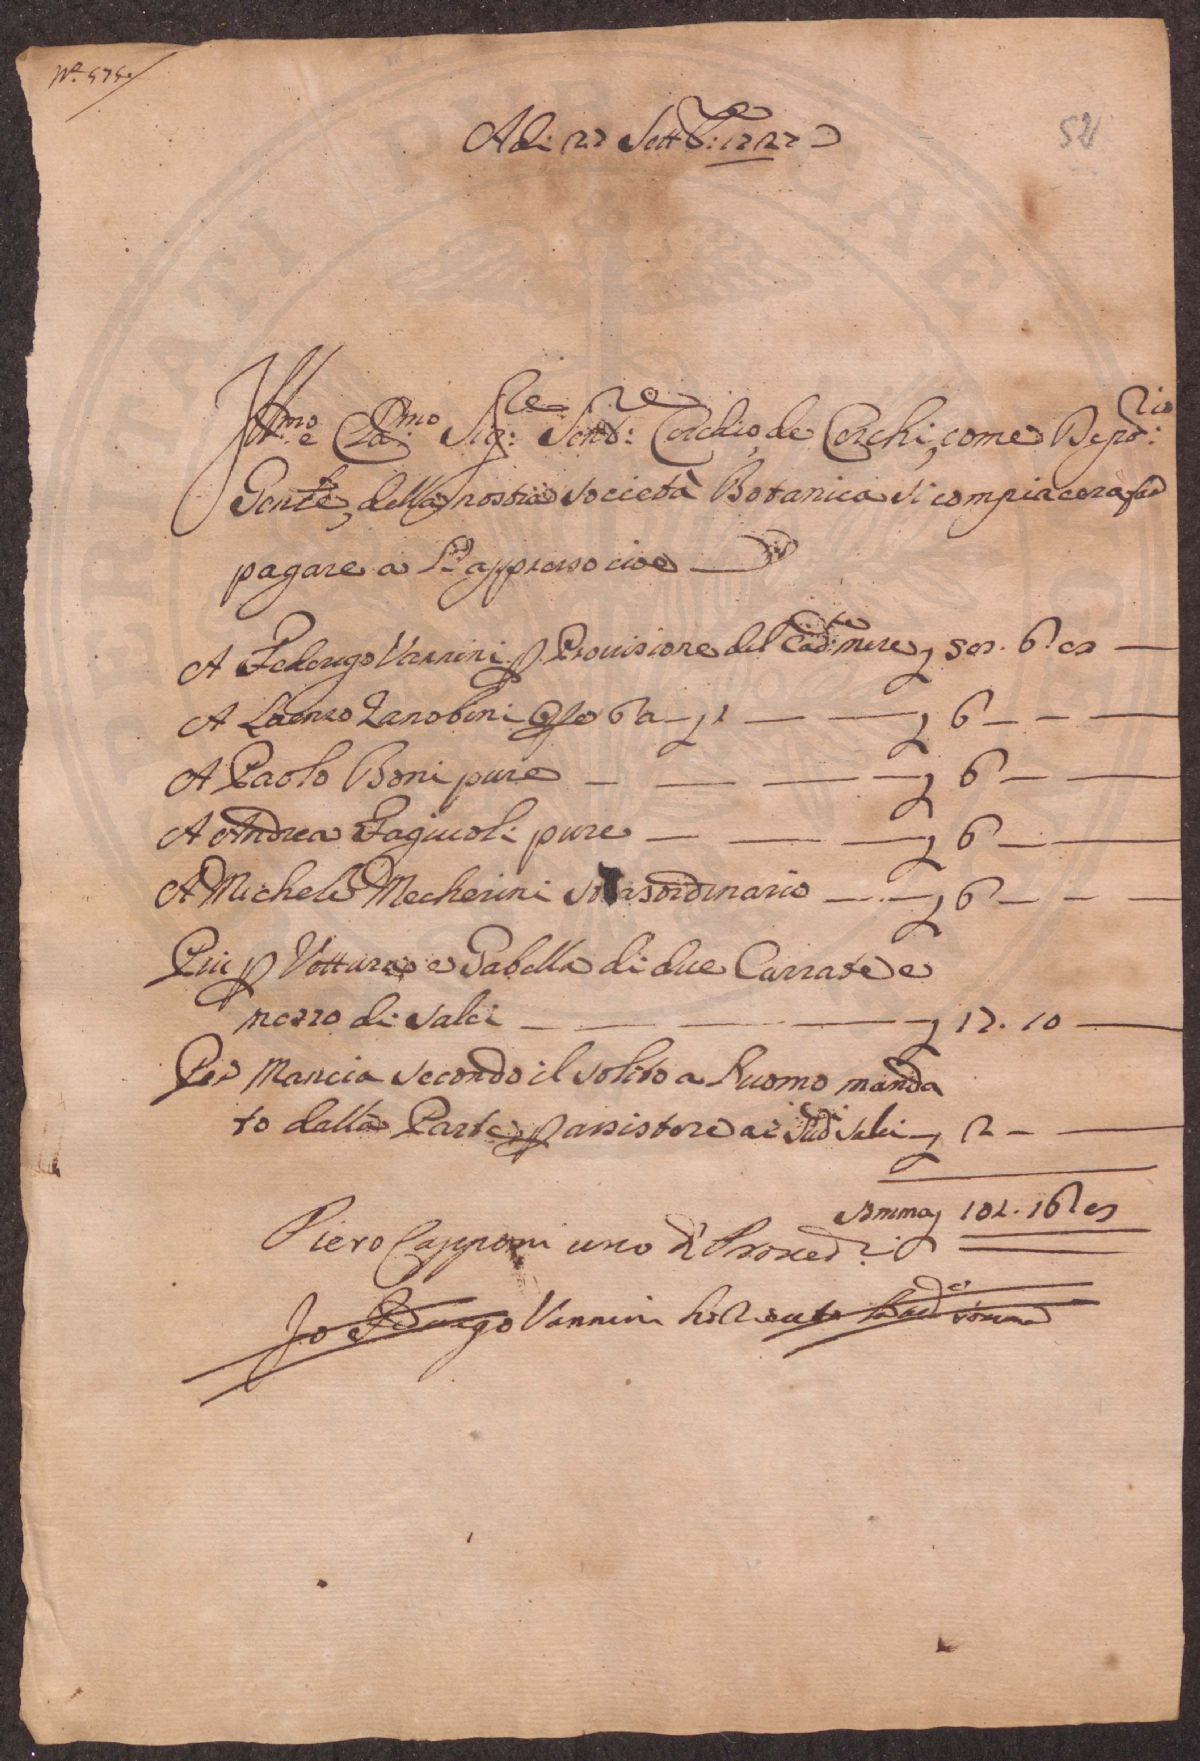 N.° 575
52
Adi 27 Settb: 1727
Ill.mo e Cla.mo Sig.re Senre: Cerchio de Cerchi, come Depo:rio
Genle, della nostra Società Botanica si compiacerà far
pagare a P. appresso cioe
A Federigo Vannini p Provisione del Cad.te mese 58. 6. 8
A Lorenzo Zanobini 6 6
A Paolo Boni pure 6
A Andrea Fagiuoli pure 6
A Michele Mecherini straordinario 6
Piu p Vettura e Gabella di due Carrate e
mezzo di Salci 17. 10
Per Mancia secondo il solito a l'uomo manda
to dalla Parte p assistere ai Sudi Salci 2
Somma 101. 16. 8
Piero Capponi uno d' Proved.ri
Io Federigo Vannini hò Riceuto la sud.a Somma